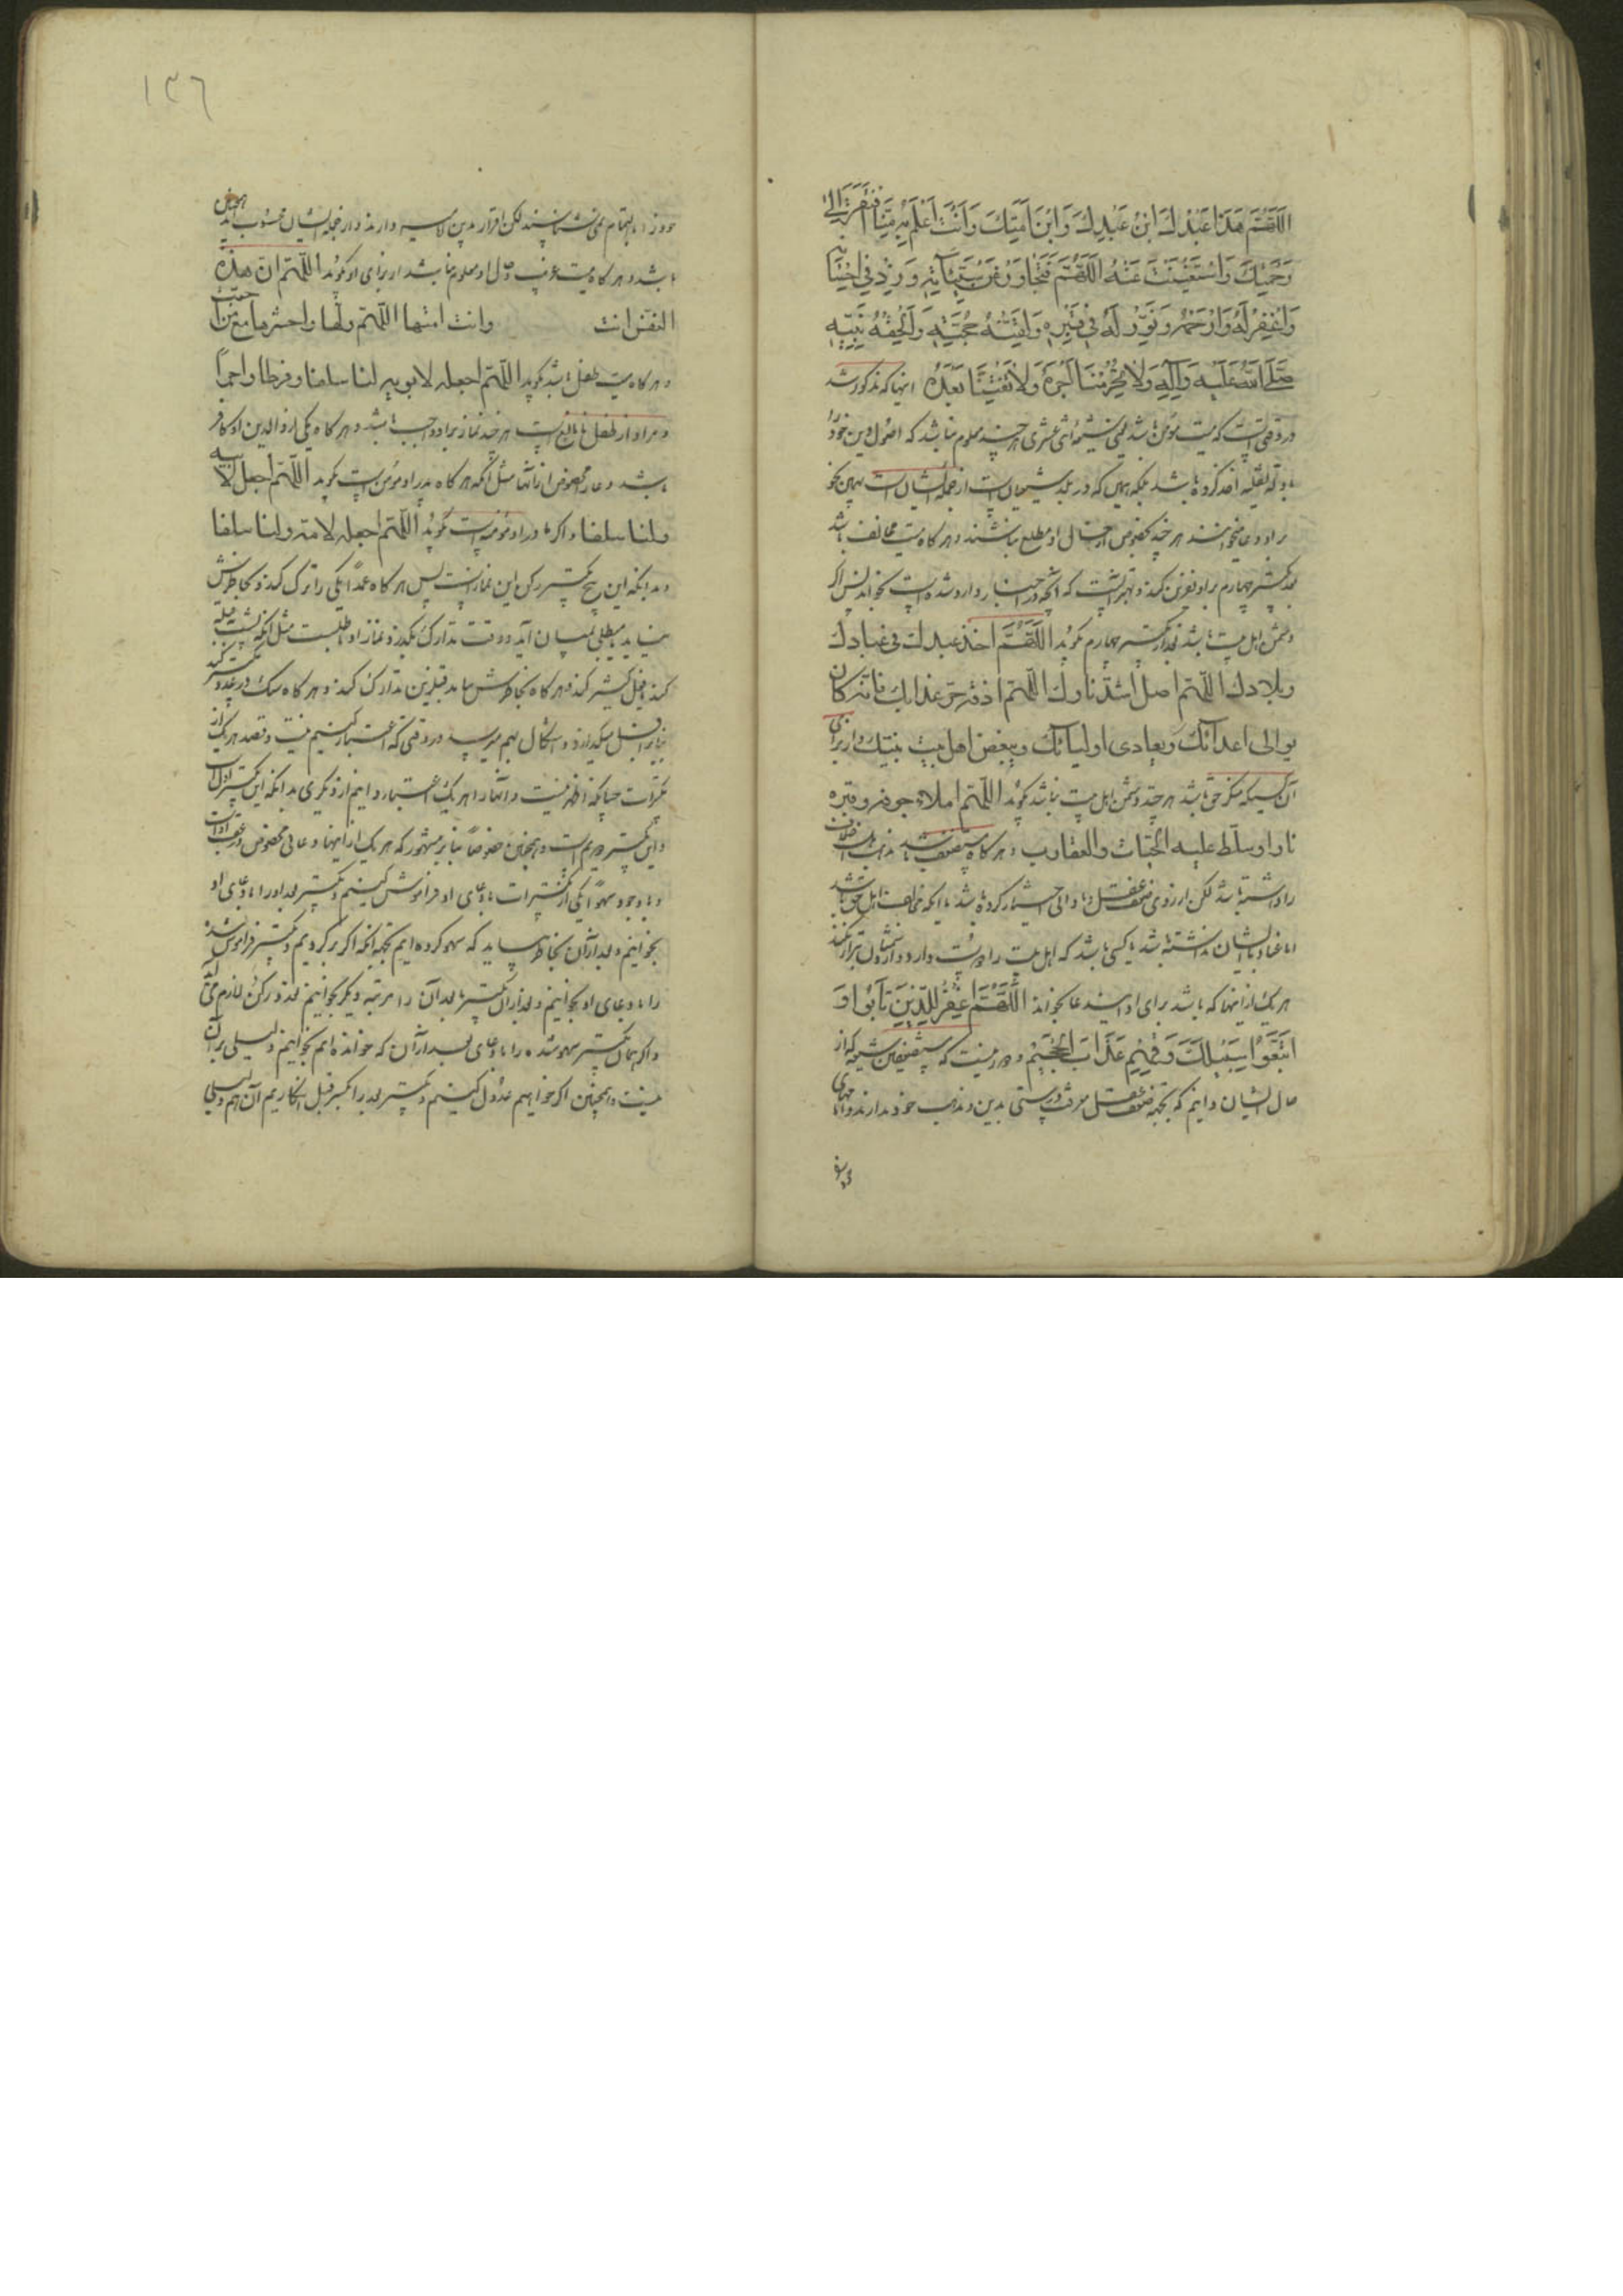 اَللّٰهُمَّ هَذَا عَبْدُكَ ابْنُ عَبْدِكَ وَابْنُ اَمَتِكَ وَاَنْتَ اَعْلَمُ بِهِ مِنَّا افْتَقَرَ اِلٰى
رَحْمَتِكَ وَاسْتَغْنَيْتَ عَنْهُ اَللّٰهُمَّ فَتَجَاوَزْ عَنْ سَيِّئَاتِهِ وَزِدْ فِي اِحْسَانِهِ
وَاغْفِرْ لَهُ وَارْحَمْهُ وَنَوِّرْ لَهُ فِي قَبْرِهِ وَلَقِّنْهُ حُجَّتَهُ وَاَلْحِقْهُ بِنَبِيِّهِ
صَلَّى اللهُ عَلَيْهِ وَآلِهِ وَلَا تَحْرِمْنَا اَجْرَهُ وَلَا تَفْتِنَّا بَعْدَهُ اینها که مذکور شد
در وقتی است که میت مؤمن باشد یعنی شیعهٔ اثنی عشری هر چند معلوم نباشد که اصول دین خود را
یا به تقلید اخذ کرده باشد بلکه همین که در بلد شیعیان است از جمله ایشان است بهمین نحو
براو دعا میخوانند هر چند بخصوص از حال او مطلع نباشند و هر کاه میت مخالف باشد
بعد تکبیر چهارم بر او نفرین کند و بهتر آنست که آنچه در اخبار وارد شده است بخواند پس اکر
دشمن اهل بیت باشد بعد از تکبیر چهارم بکوید اَللّٰهُمَّ اخز عبدك في عبادك
وبلادك اللّهمّ اصله اشدّ نارك اللّهمّ اذقه حرّ عذابك فانّه كان
يوالى اعدائك ويعادى اوليائك ويبغض اهل بيت نبيّك و از برای
آن کسیکه منکر حق باشد هر چند دشمن اهل بیت نباشد بکوید اللّهمّ املاء جوفه وقبره
نارا وسلّط عليه الحيّات والعقارب و هر کاه مستضعف باشد
را داشته باشد لکن از روی ضعف عقل و نادانی اختیار کرده باشد با آنکه مخالف اهل حق باشد
اما عناد با ایشان نداشته باشد یا کسی باشد که اهل بیت را دوست دارد و از دشمنان تبرا نکند
هر یک از اینها که باشد برای او این دعا بخواند اَللّٰهُمَّ اغْفِرْ لِلَّذِينَ تَابُوا وَ
اتَّبَعُوا سَبِيلَكَ وَقِهِمْ عَذَابَ الْجَحِيمِ و دور نیست که مستضعفین شیعه که از
حال ایشان دانیم که بجهة ضعف عقل معرفت درستی بدین و مذهب خود ندارند و امامهای
خود
١٣٦
خود را بالتمام نمی شناسند لکن اقرار بدین امامیه دارند و از جمله ایشان محسوب اند همچنین
باشد و هر کاه میت غریب و حال او معلوم نباشد از برای او کوید اللّهمّ انّ هذه
النفس انت وانت امتها اللّهمّ ولّها واحشرها مع من احبّت
و هر کاه میت طفل باشد بکوید اللّهمّ اجعله لابويه لنا سلفا وفرطا واجراً
و مراد از طفل نابالغ است هر چند نماز براو واجب باشد و هر کاه یکی از والدین او کافر
باشد دعا مخصوص آنها مثل آنکه هر کاه پدر او مؤمن است بکوید اللّهمّ اجعله لابيه
ولنا سلفا و اکر مادر او مؤمنه است بکوید اللّهمّ اجعله لامّه ولنا سلفا
و بدانکه این پنج تکبیر رکن این نماز است پس هر کاه عمداً یکی را ترک کند و بخاطرش
نیاید یا مبطلی بمیان آید و وقت تدارک بکذرد نماز او باطلست مثل آنکه پشت بقبله
کند یا فعل کثیر کند و هر کاه بخاطرش بیاید قبل از این تدارک کند و هر کاه شک در عدد تکبیر کند
بنابر اقل میکذارد
تکبیرات چنانکه اظهر نیست
و این تکبیر دویم است و همچنین خصوصاً بنابر مشهور که هر یک از اینها دعائی مخصوص
و با وجود سهواً یکی از تکبیرات با دعای او فراموش کنیم و تکبیر بعد او را با دعای او
بخوانیم و بعد از آن بخاطر بیاید که سهو کرده ایم بجهة آنکه اکر برکردیم و تکبیر فراموش شده
را با دعای او بخوانیم و بعد از آن تکبیر بعد آن را مرتبه دیکر بخوانیم تعدد رکن لازم می آید
و اکر همان تکبیر سهو شده را با دعای بعد از آن که خوانده ایم بخوانیم دلیلی بر آن
نیست و همچنین اکر خواهیم عدول کنیم و تکبیر بعد را تکبیر قبل انکاریم آن هم دلیلی